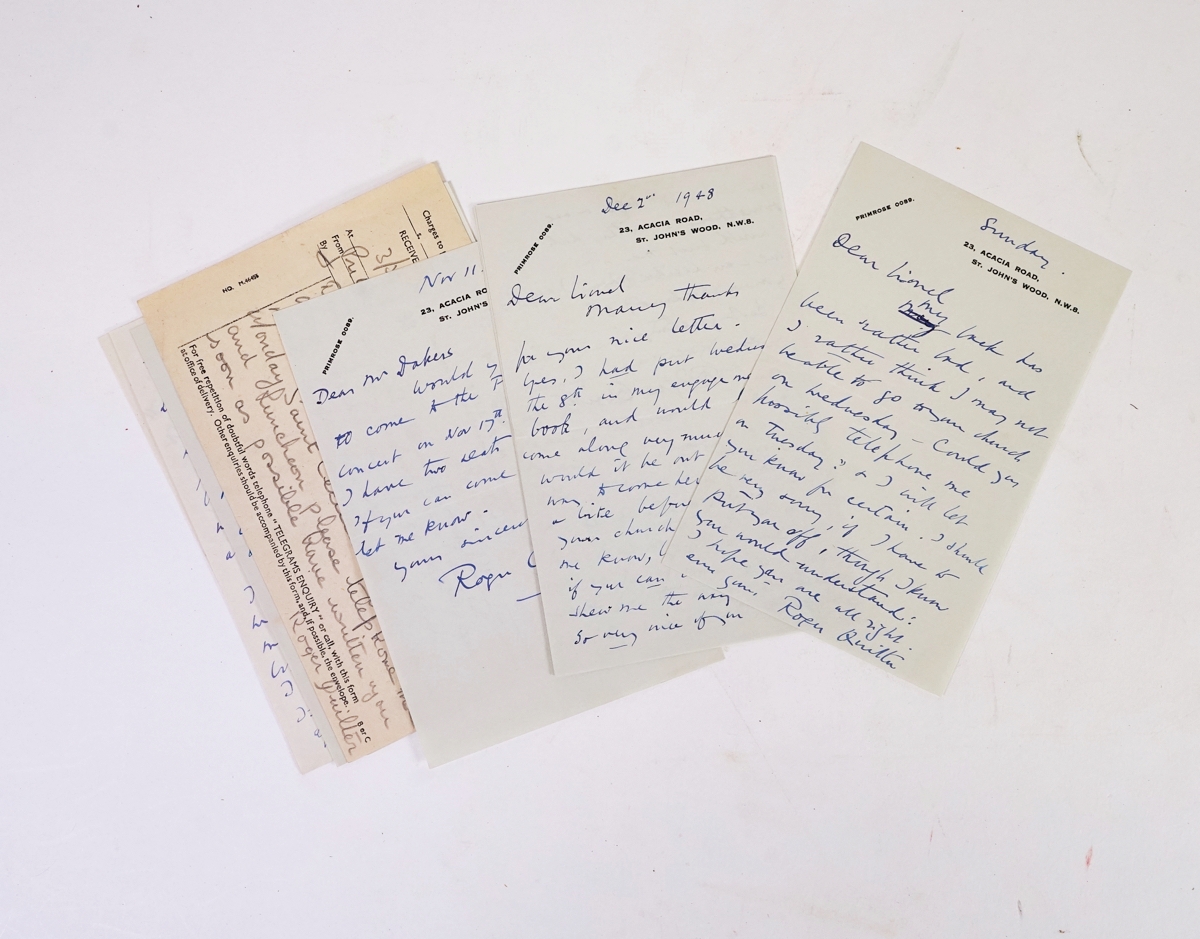 Charges to
RECEIVE
At
From
By
NO. M.46498
Monday Saint
and luncheon Please telephone me
soon as possible have written you
Roger Quilter
For free repetition of doubtful words telephone "TELEGRAMS ENQUIRY" or call, with this form
at office of delivery. Other enquiries should be accompanied by this form, and, if possible, the envelope.
B or C
Nov 11
PRIMROSE 0089.
23, ACACIA RO
ST. JOHN'S
Dear Mr Dakers
would y
to come to the F
concert on Nov 17th
I have two seats
If you can come
let me know.
yours sincere
Roger
Dec 2nd 1948
PRIMROSE 0089.
23, ACACIA ROAD,
ST. JOHN'S WOOD, N.W.8.
Dear Lionel
many thanks
for your nice letter.
Yes, I had put Wednes
the 8th in my engagem
book, and would
come along very much
would it be out
way to come her
a bite befor
your church
me know,
if you can
shew me the way
So very nice of you
Sunday.
PRIMROSE 0089.
23, ACACIA ROAD,
ST. JOHN'S WOOD, N.W.8.
Dear Lionel
my back has
been rather bad, and
I rather think I may not
be able to go to your church
on Wednesday - Could you
possibly telephone me
on Tuesday? & I will let
you know for certain. I should
be very sorry, if I have to
put you off, though I know
you would understand:
I hope you are all right.
Roger Quilter